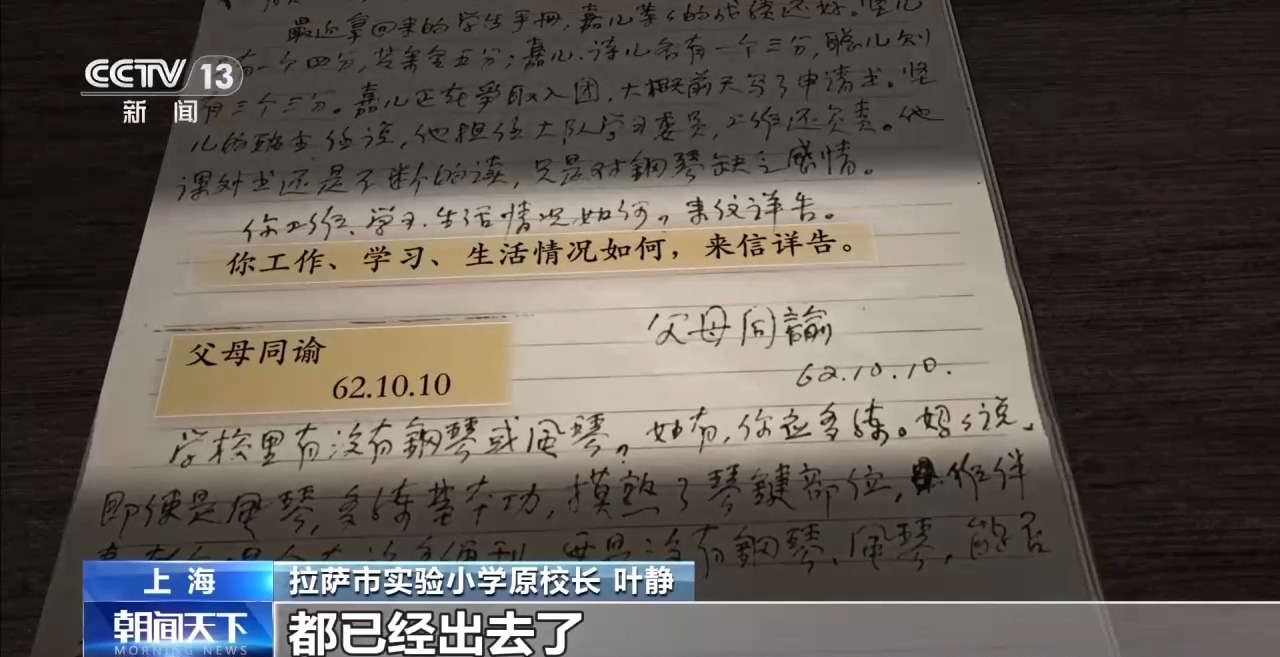 最近拿回来的学生手册，嘉儿等的成绩还好。坚儿
有一个四分，其余全五分；嘉儿、诗儿各有一个三分，聪儿则
有三个三分。嘉儿正在争取入团，大概前天写了申请书。坚
儿的班主任说，他担任大队学习委员，工作还负责。他
课外书还是不断的读，只是对鋼琴缺乏感情。
你工作、学习、生活情况如何，来信详告。
你工作、学习、生活情况如何，来信详告。
父母同諭
62.10.10.
父母同谕
62.10.10
学校里有没有鋼琴或風琴。如有，你应多练。妈々说，
即使是風琴，多练基本功，摸熟了琴鍵部位，
要是没有鋼琴、風琴，能否
CCTV 13
新闻
上海
拉萨市实验小学原校长 叶静
朝闻天下
MORNING NEWS
都已经出去了